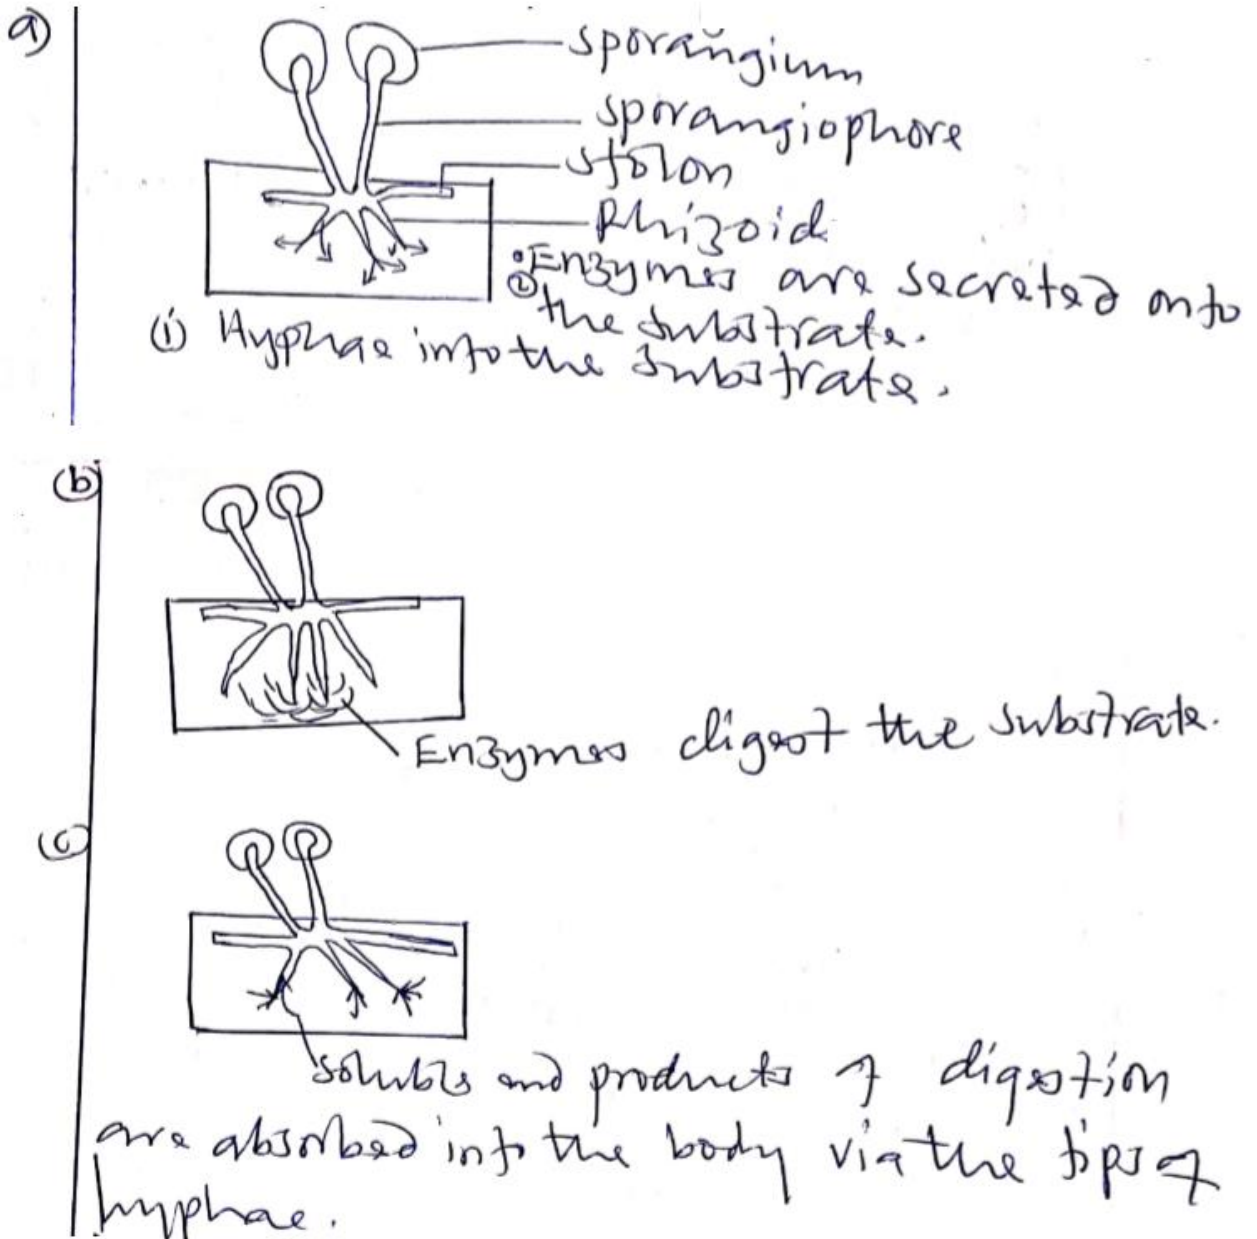 a)
sporangium
sporangiophore
stolon
Rhizoid
• Enzymes are secreted onto
② the substrate.
(i) Hyphae into the substrate.
(b)
Enzymes digest the substrate.
(c)
soluble end products of digestion
are absorbed into the body via the tips of
hyphae.